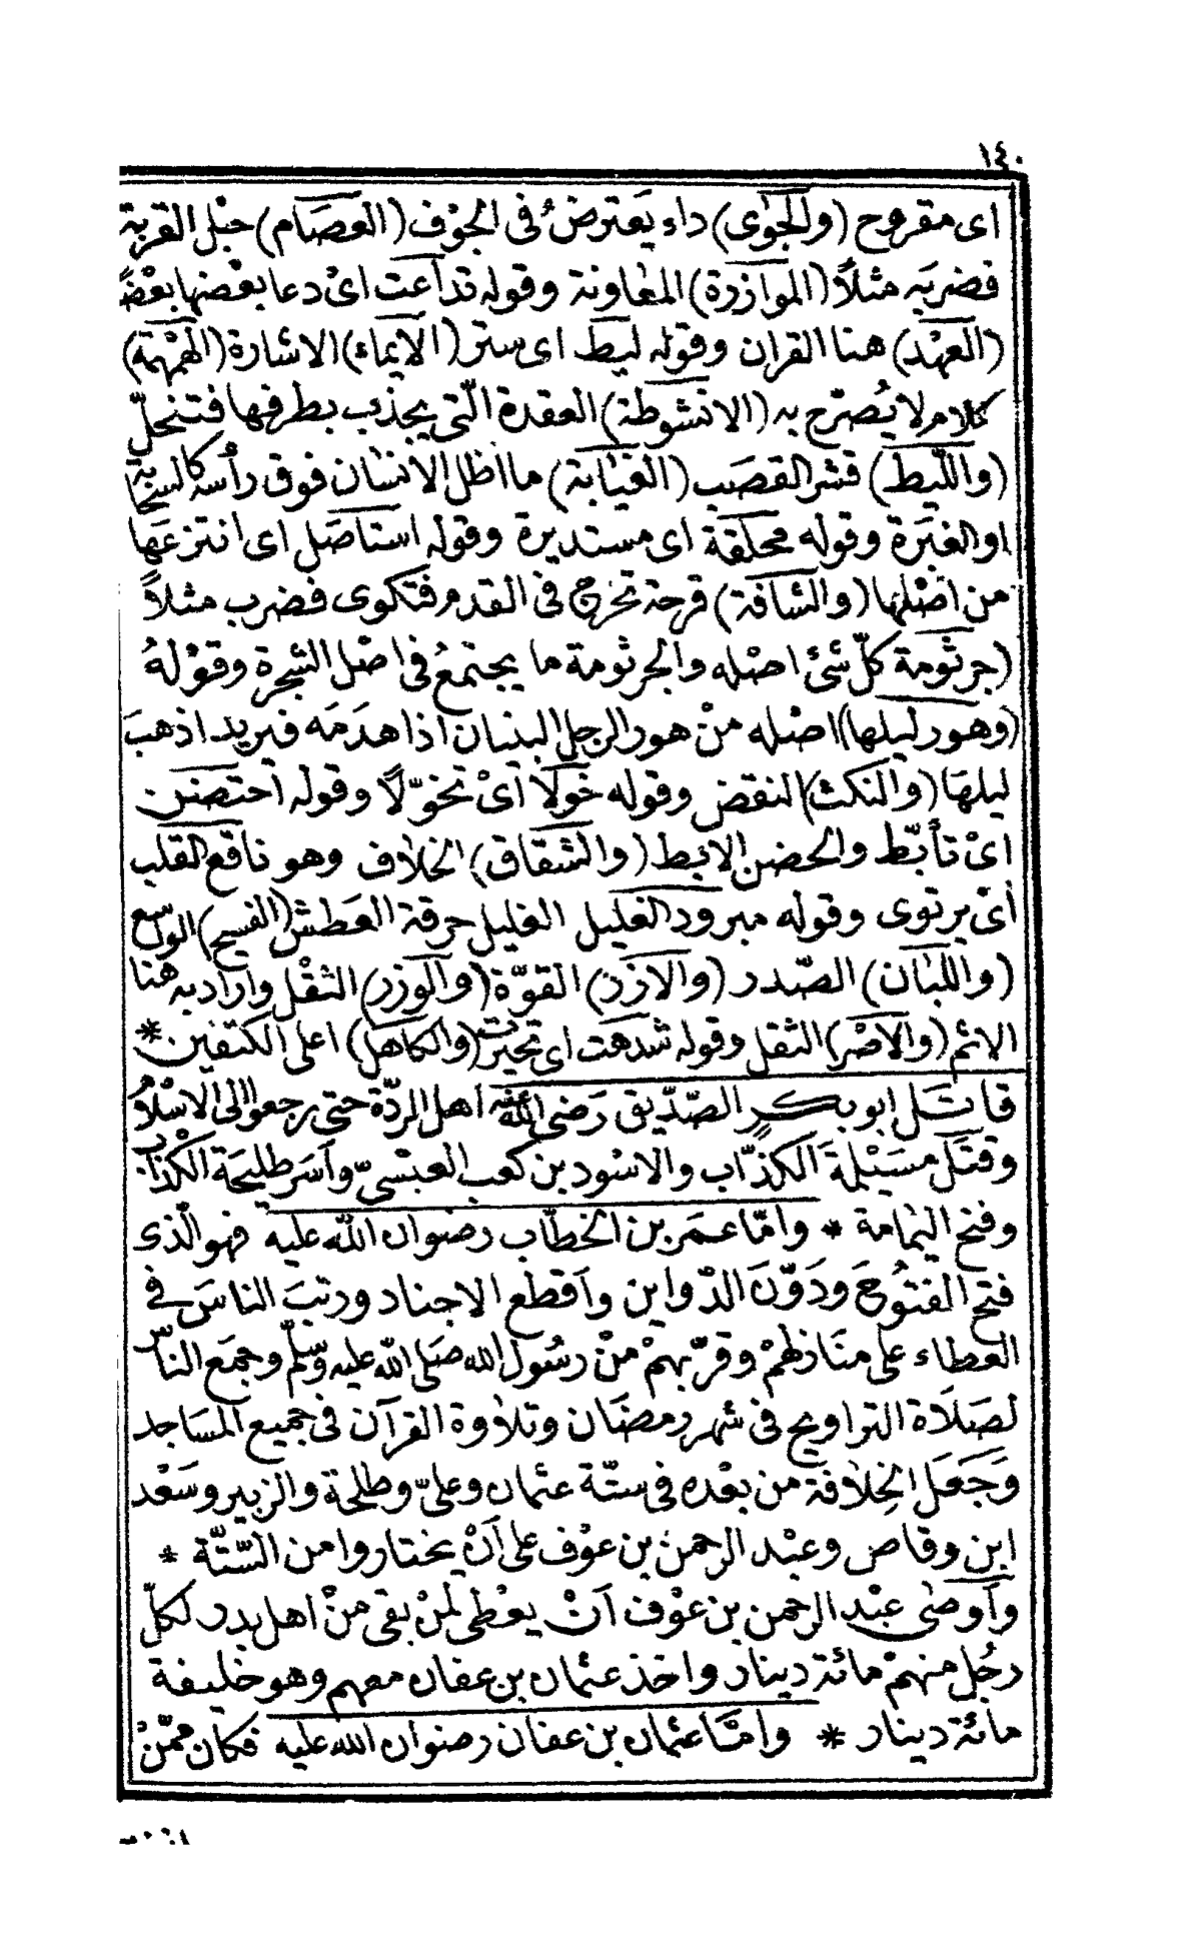 ١٤٠
اى مقروح (والجَوٰى) داء يَعترضُ فى الجوْف (العِصَام) حبْل القربة
فضربَه مثلاً (الموازرة) المعاونة وقوله تداعت اىْ دعا بعْضها بعْضًا
(العهْد) هنا القران وقوله ليط اى ستر (الايماء) الاشارة (الهمْهمة)
كلام لا يُصرّح به (الانشوطة) العقدة الّتى يجذب بطرفها فتنحلّ
(والليط) قشر القصَب (الغيَابة) ما اظل الانسٰان فوق رأسه كالسحَابة
او الغبَرة وقوله محلقة اى مستديرة وقوله استاصَل اى انتزعَها
من اصْلها (والشافة) قرحة تخرج فى القدم فتكوى فضرب مثلاً
(جرثومة كلّ شئ اصْله والجرثومة ما يجتمعُ فى اصْل الشجرة وقوْلهُ
(وهور ليلها) اصْله منْ هور الرجل البنيان اذا هدَمَه فيريد اذهبَ
ليلهَا (والنكث) النقض وقوله خَوَلا اىْ تخوّلًا وقوله احتضَن
اىْ تأبّط والحضن الابط (والشقاق) الخلاف وهو ناقع القلب
اىْ يرتوى وقوله مبرود الغليل الغليل حرقة العَطش (الفسيح) الواسع
(واللبَان) الصّدر (والازر) القوّة (والوزر) الثقْل واراد به هنا
الاثم (والاصْر) الثقل وقوله شدهت اى تحيرت (والكاهل) اعلى الكتفين *
قاتَل ابو بكر الصّدّيق رَضى الله عنه اهل الردّة حتى رجعوا الى الاسْلام
وقتَل مسَيْلمَة الكذّاب والاسْود بن كعب العبْسىّ وأسَر طليحَة الكذاب
وفتح اليمَامة * وامّا عمَر بن الخطاب رضوان الله عليه فهو الّذى
فتح الفتُوحَ ودَوّنَ الدّواوين وأقطع الاجناد ورتبَ الناسَ فى
العطاء على منَازلهمْ وقرّبهمْ منْ رسُول الله صَلى الله عليه وسّلم وجمَع الناسّ
لصَلَاة التراويح فى شهر رمضَان وتلاوة القرآن فى جميع المسَاجد
وَجَعَل الخِلَافَة من بعْده فى ستّة عثمان وعلىّ وطلحة والزبير وسَعْد
ابن وقاص وعبْد الرحمن بن عوْف على أنْ يختاروا من السّتّة *
وأوصَى عبْد الرحمن بن عوْف أنْ يعْطى لمنْ بقى منْ اهل بدر لكلّ
رجُل منهمْ مائة دينار واخذ عثمان بن عفان معهم وهو خليفة
مائة دينار * وامّا عثمان بن عفان رضوان الله عليه فكان ممّنْ